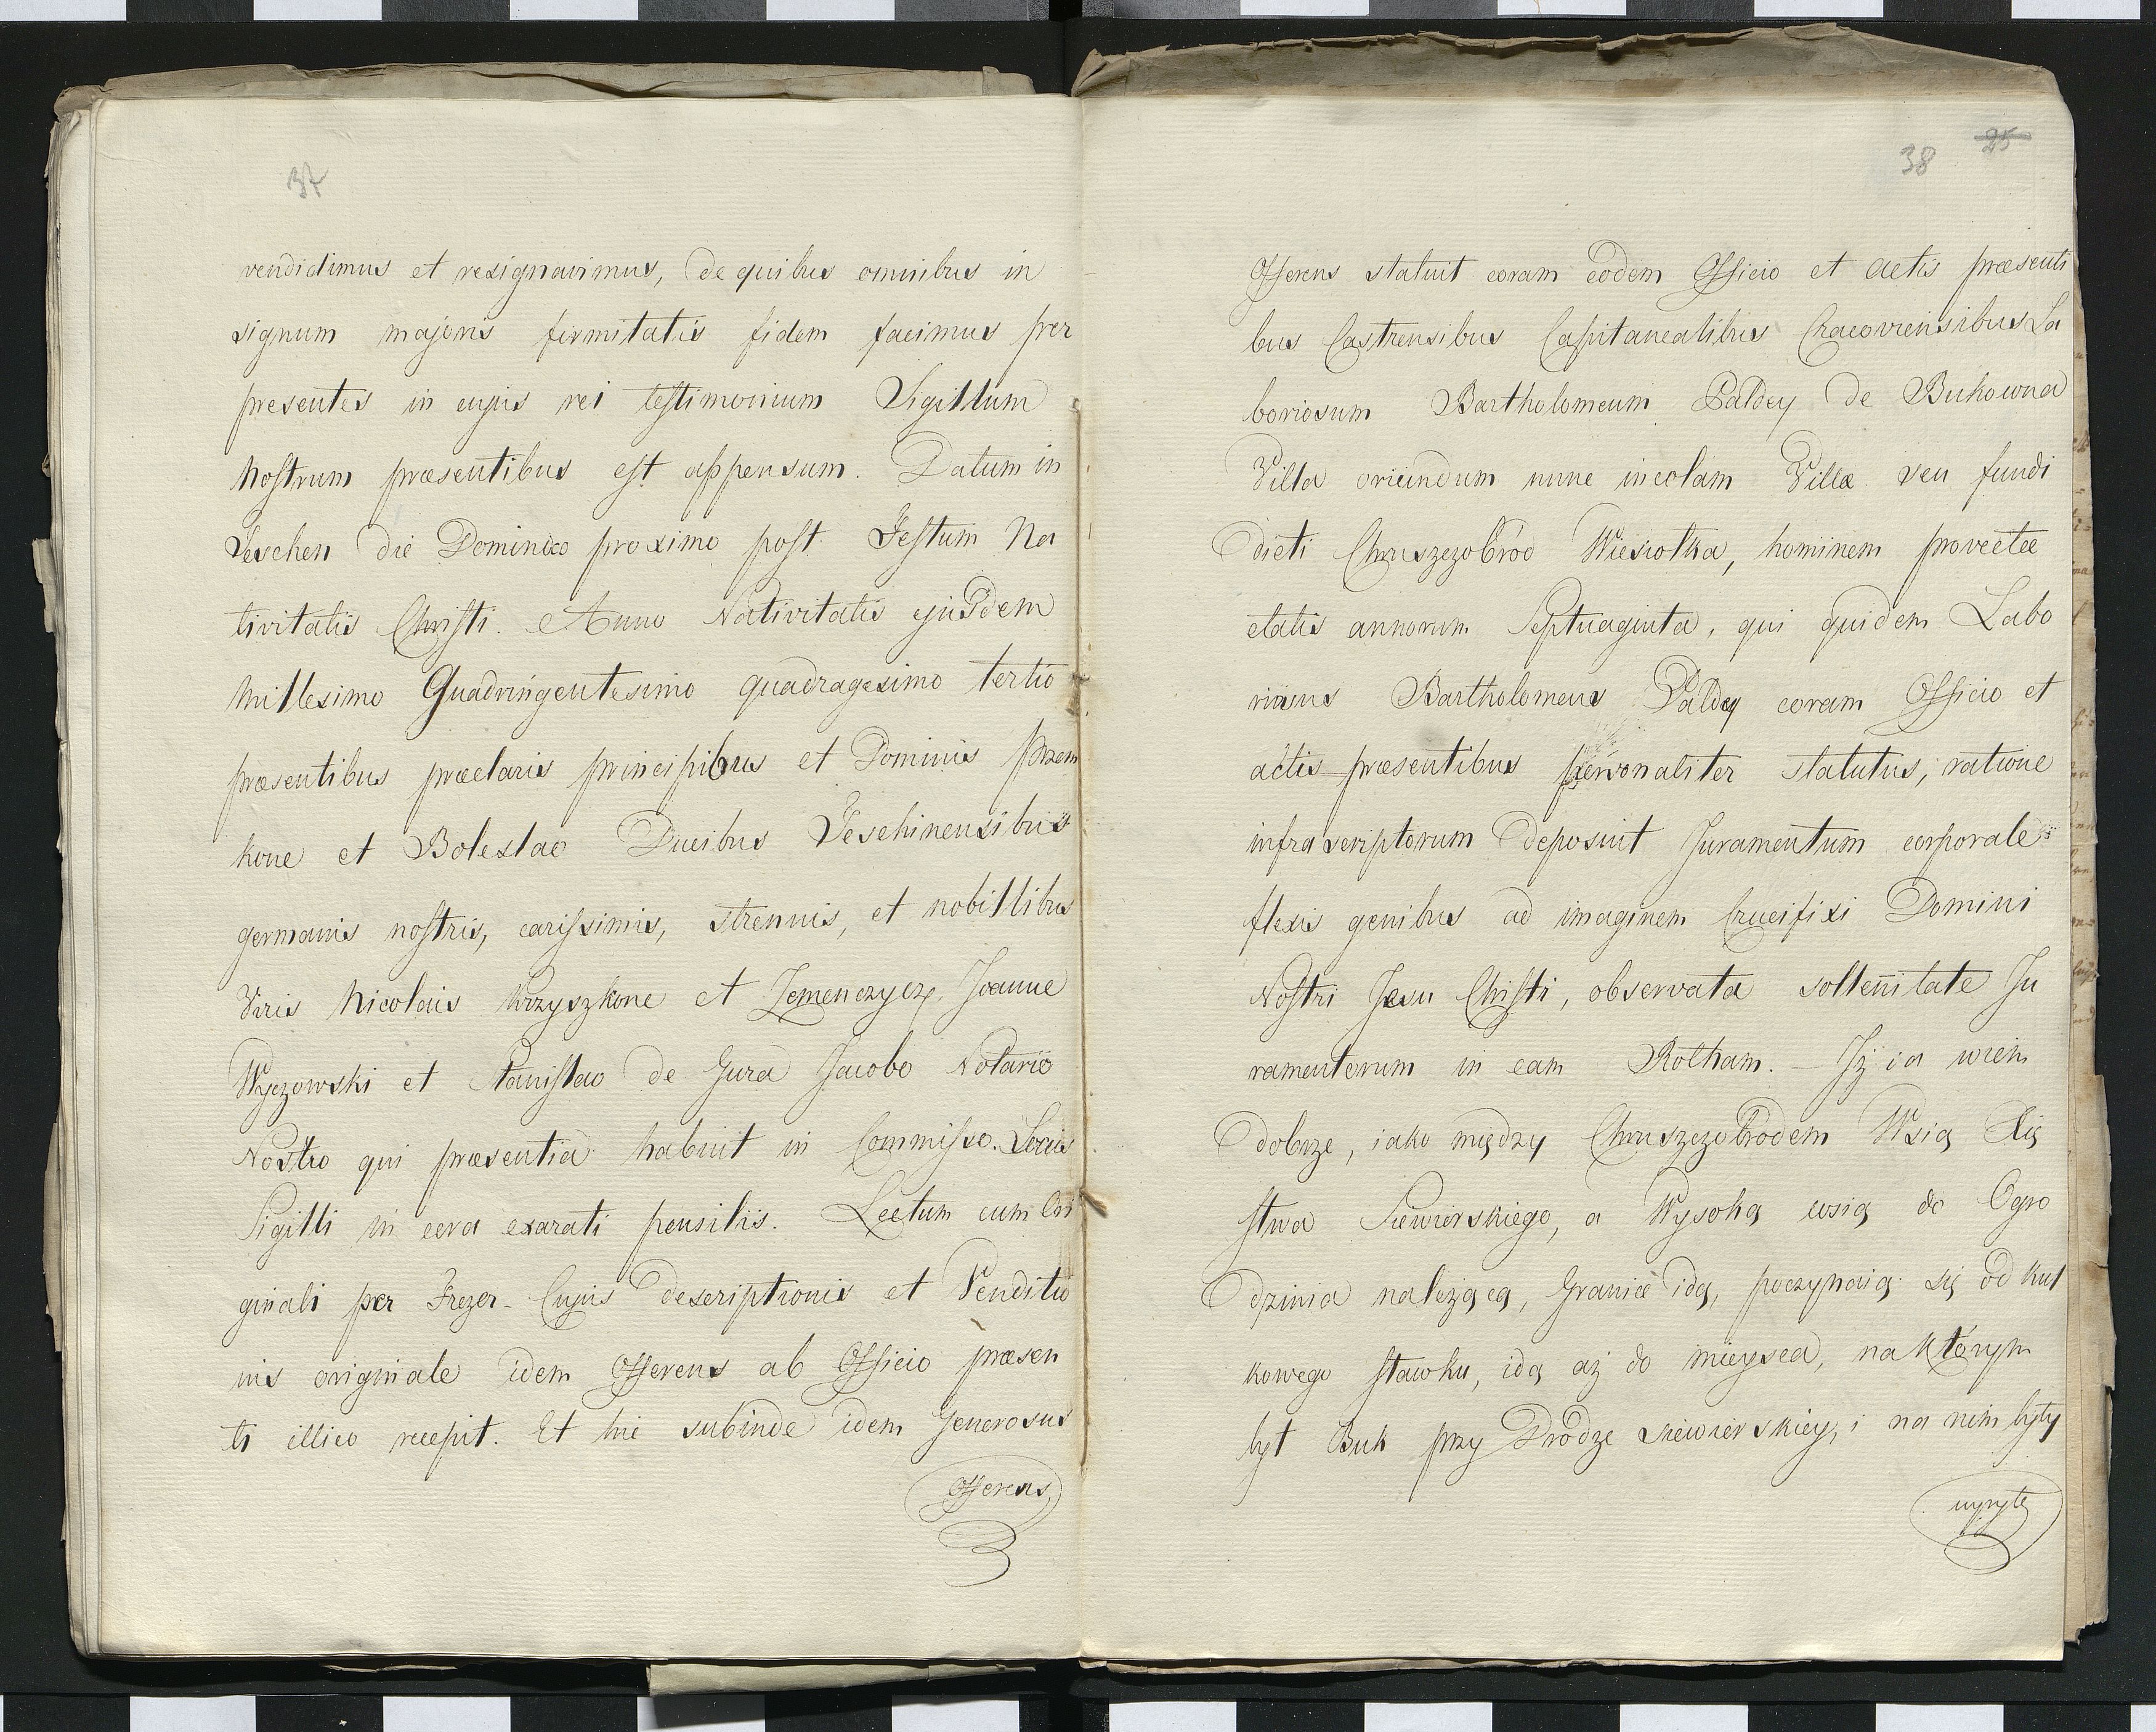 37
vendidimus et resignavimus, de quibus omnibus in
signum majoris firmitatis fidem facimus per
presentes in cujus rei testimonium Sigillum
Nostrum præsentibus est appensum. Datum in
Teschen die Dominico proximo post Festum Na
tivitatis Christi. Anno Nativitatis ejusdem
Millesimo Quadringentesimo quadragesimo tertio
præsentibus præclaris principibus et Dominis Przem
kone et Boleslao Ducibus Teschinensibus
germanis nostris, carissimis, strenuis, et nobillibus
Viris Nicolais Krzyszkone et Zemenczycz, Joanne
Wyczowski et Stanislao de Gura Jacobo Notario
Nostro qui præsentia habuit in Commisso. Locus
Sigilli in cera exarati pensilis. Lectum cum Ori
ginali per Frezer - Cujus descriptionis et Venditio
nis originale idem Offerens ab Officio præsen
ti illico recepit. Et hic subinde idem Generosus
Offerens
38 25
Offerens statuit coram eodem Officio et actis præsenti
bus Castrensibus Capitanealibus Cracoviensibus La
boriosum Bartholomeum Paldey de Bukowna
Villa oriundum nunc incolam Villæ seu fundi
dicti Chruszczobród Wiesiołka, hominem provectæ
etatis annorum Septuaginta, qui quidem Labo
riosus Bartholomeus Paldey coram Officio et
actis præsentibus personaliter statutus, ratione
infrascriptorum deposuit Juramentum corporale
flexis genibus ad imaginem Crucifixi Domini
Nostri Jesu Christi, observata sollennitate Ju
ramentorum in eam Rotham. - Jż ia wiem
dobrze, iako między Chruszczobrodem Wsią Xię
stwa Siewierskiego, a Wysoką wsią do Ogro
dzinia należącą, Granice idą, poczynaią się od Kul
kowego stawku, idą aż do mieysca, na którym
był Buk przy Drodze Siewierskiey, i na nim były
wyryte